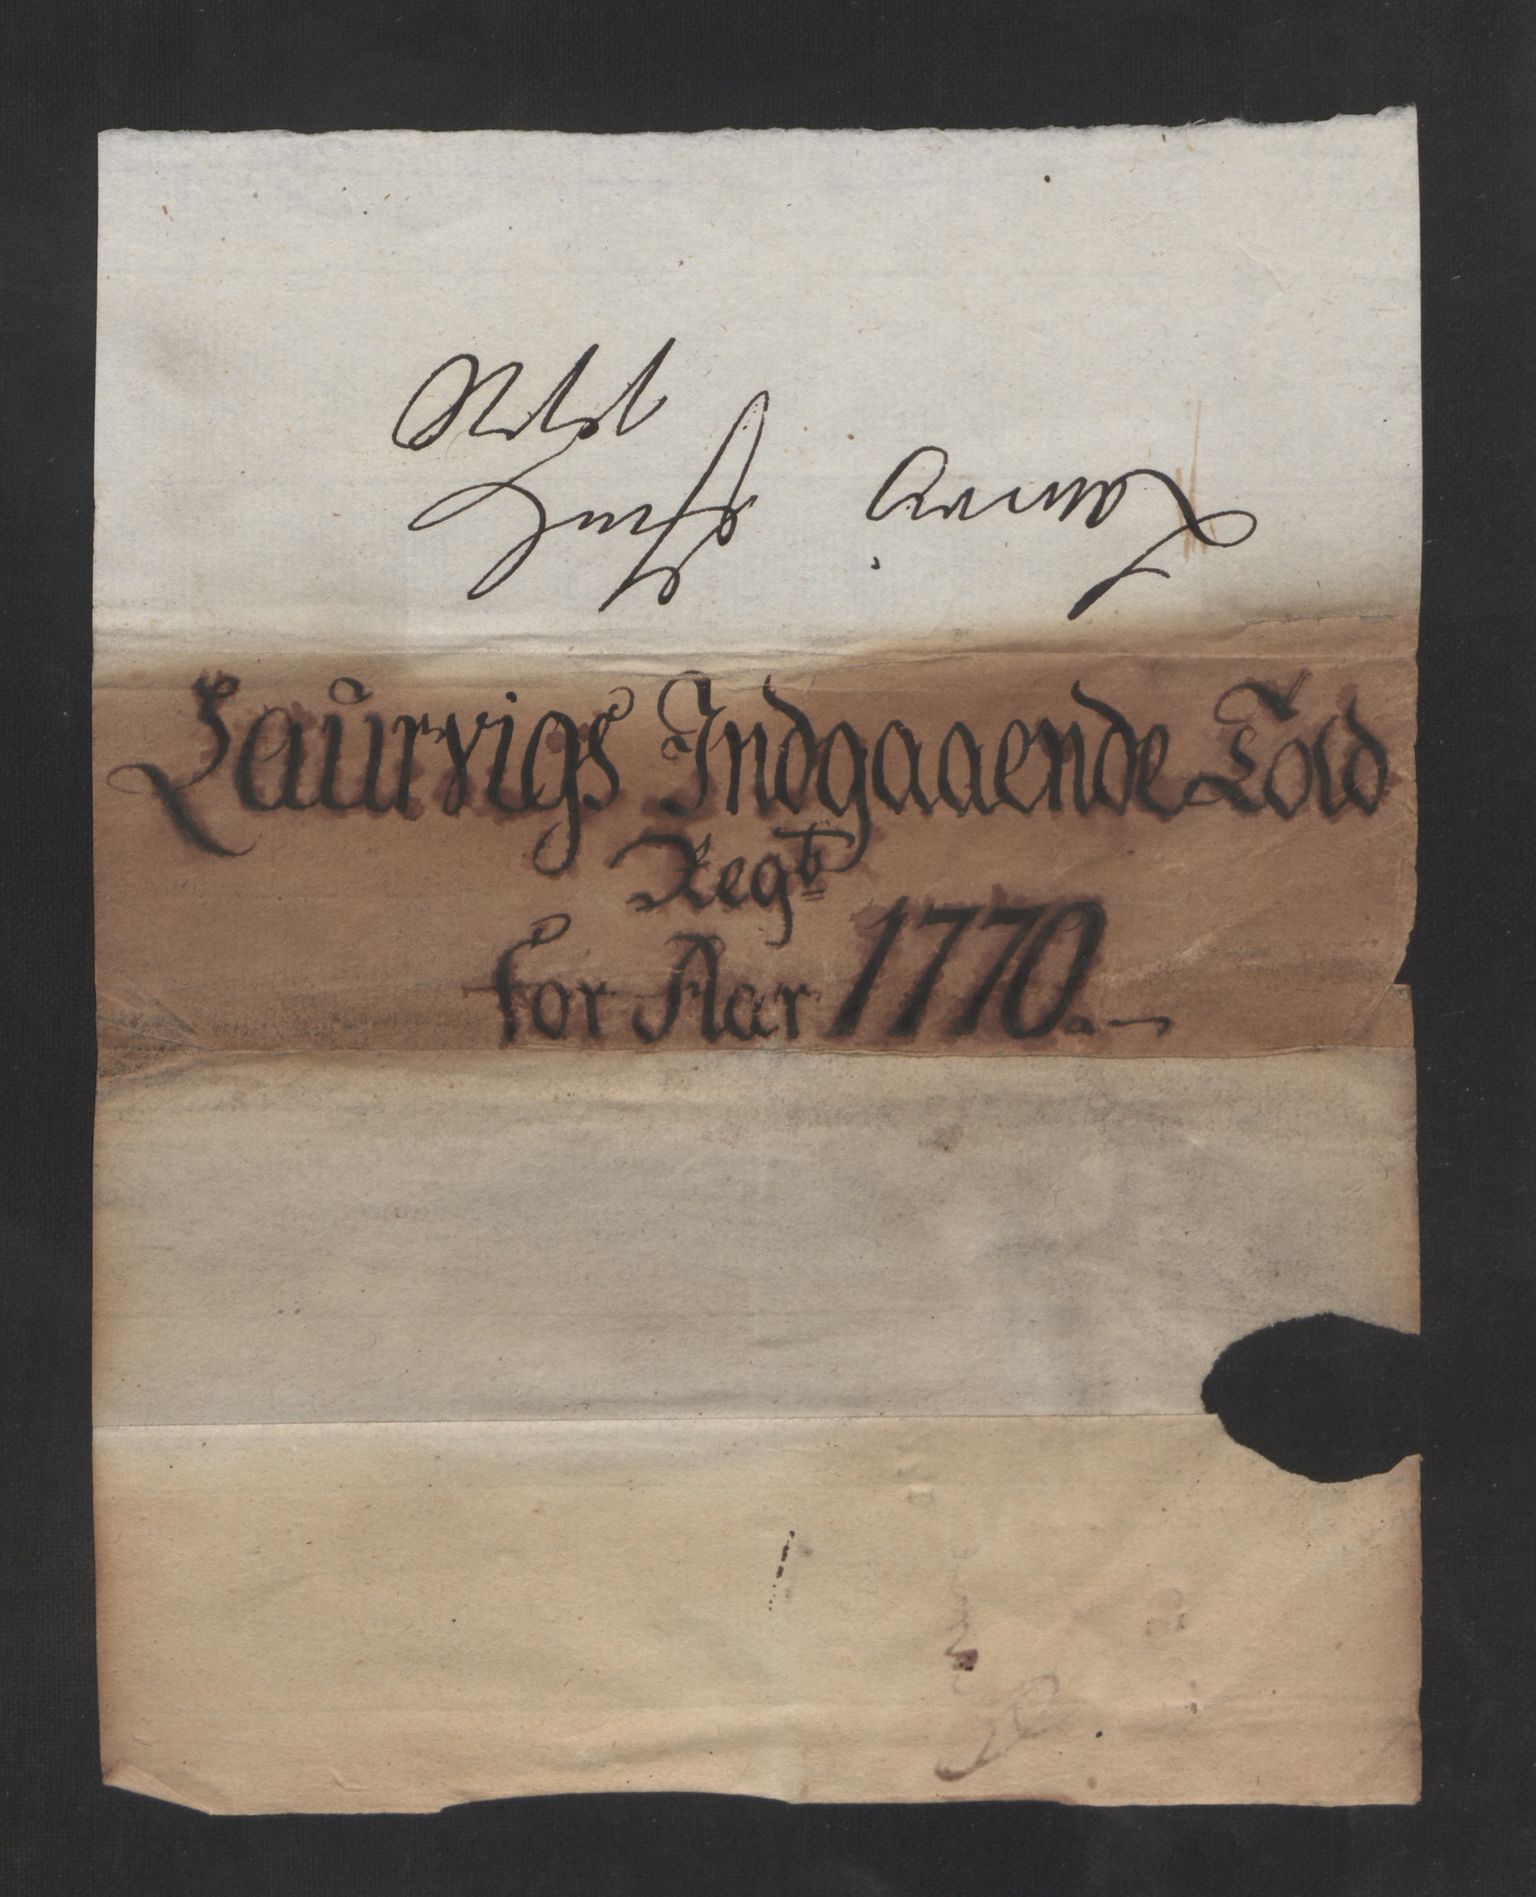 Laurvig
Laurvigs Indgaaende Told
Regb
for Aar 1770.—